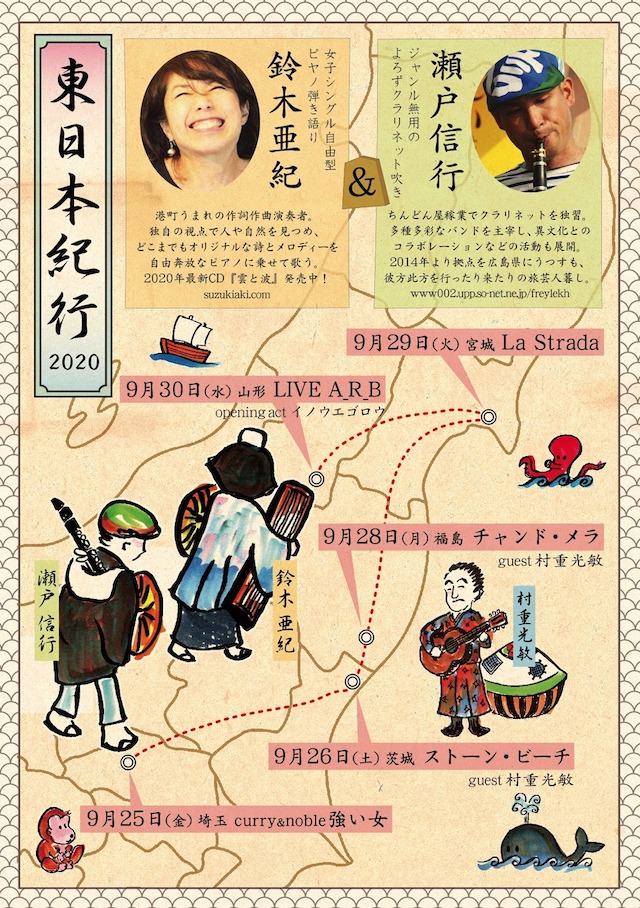 東日本紀行
2020
女子シングル自由型
ピヤノ弾き語り
鈴木亜紀
港町うまれの作詞作曲演奏者。
独自の視点で人や自然を見つめ、
どこまでもオリジナルな詩とメロディーを
自由奔放なピアノに乗せて歌う。
2020年最新CD『雲と波』発売中！
suzukiaki.com
&
瀬戸信行
ジャンル無用の
よろずクラリネット吹き
ちんどん屋稼業でクラリネットを独習。
多種多彩なバンドを主宰し、異文化との
コラボレーションなどの活動も展開。
2014年より拠点を広島県にうつすも、
彼方此方を行ったり来たりの旅芸人暮し。
www002.upp.so-net.ne.jp/freylekh
9月29日(火) 宮城 La Strada
9月30日(水) 山形 LIVE A_R_B
opening act イノウエゴロウ
9月28日(月) 福島 チャンド・メラ
guest 村重光敏
瀬戸 信行
鈴木 亜紀
村重光敏
9月26日(土) 茨城 ストーン・ビーチ
guest 村重光敏
9月25日(金) 埼玉 curry&noble 強い女